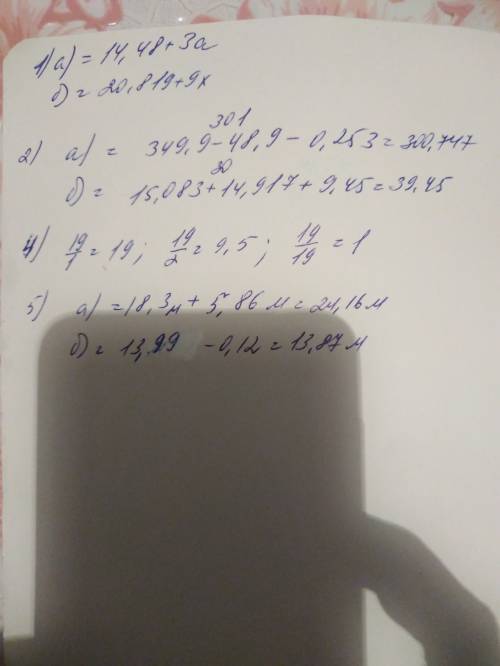 1) а) = 14,48+3а
б) = 20,819+9х
301
2) а) = 349,9-48,9-0,253=300,747
30
б) = 15,083+14,917+9,45=39,45
4) 19/1=19; 19/2=9,5; 19/19=1
5) а) =18,3м+5,86м=24,16м
б) = 13,99 -0,12=13,87м